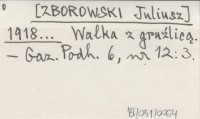 [ZBOROWSKI Juliusz]
1918... Walka z gruźlicą.
– Gaz. Podh. 6, nr 12: 3.